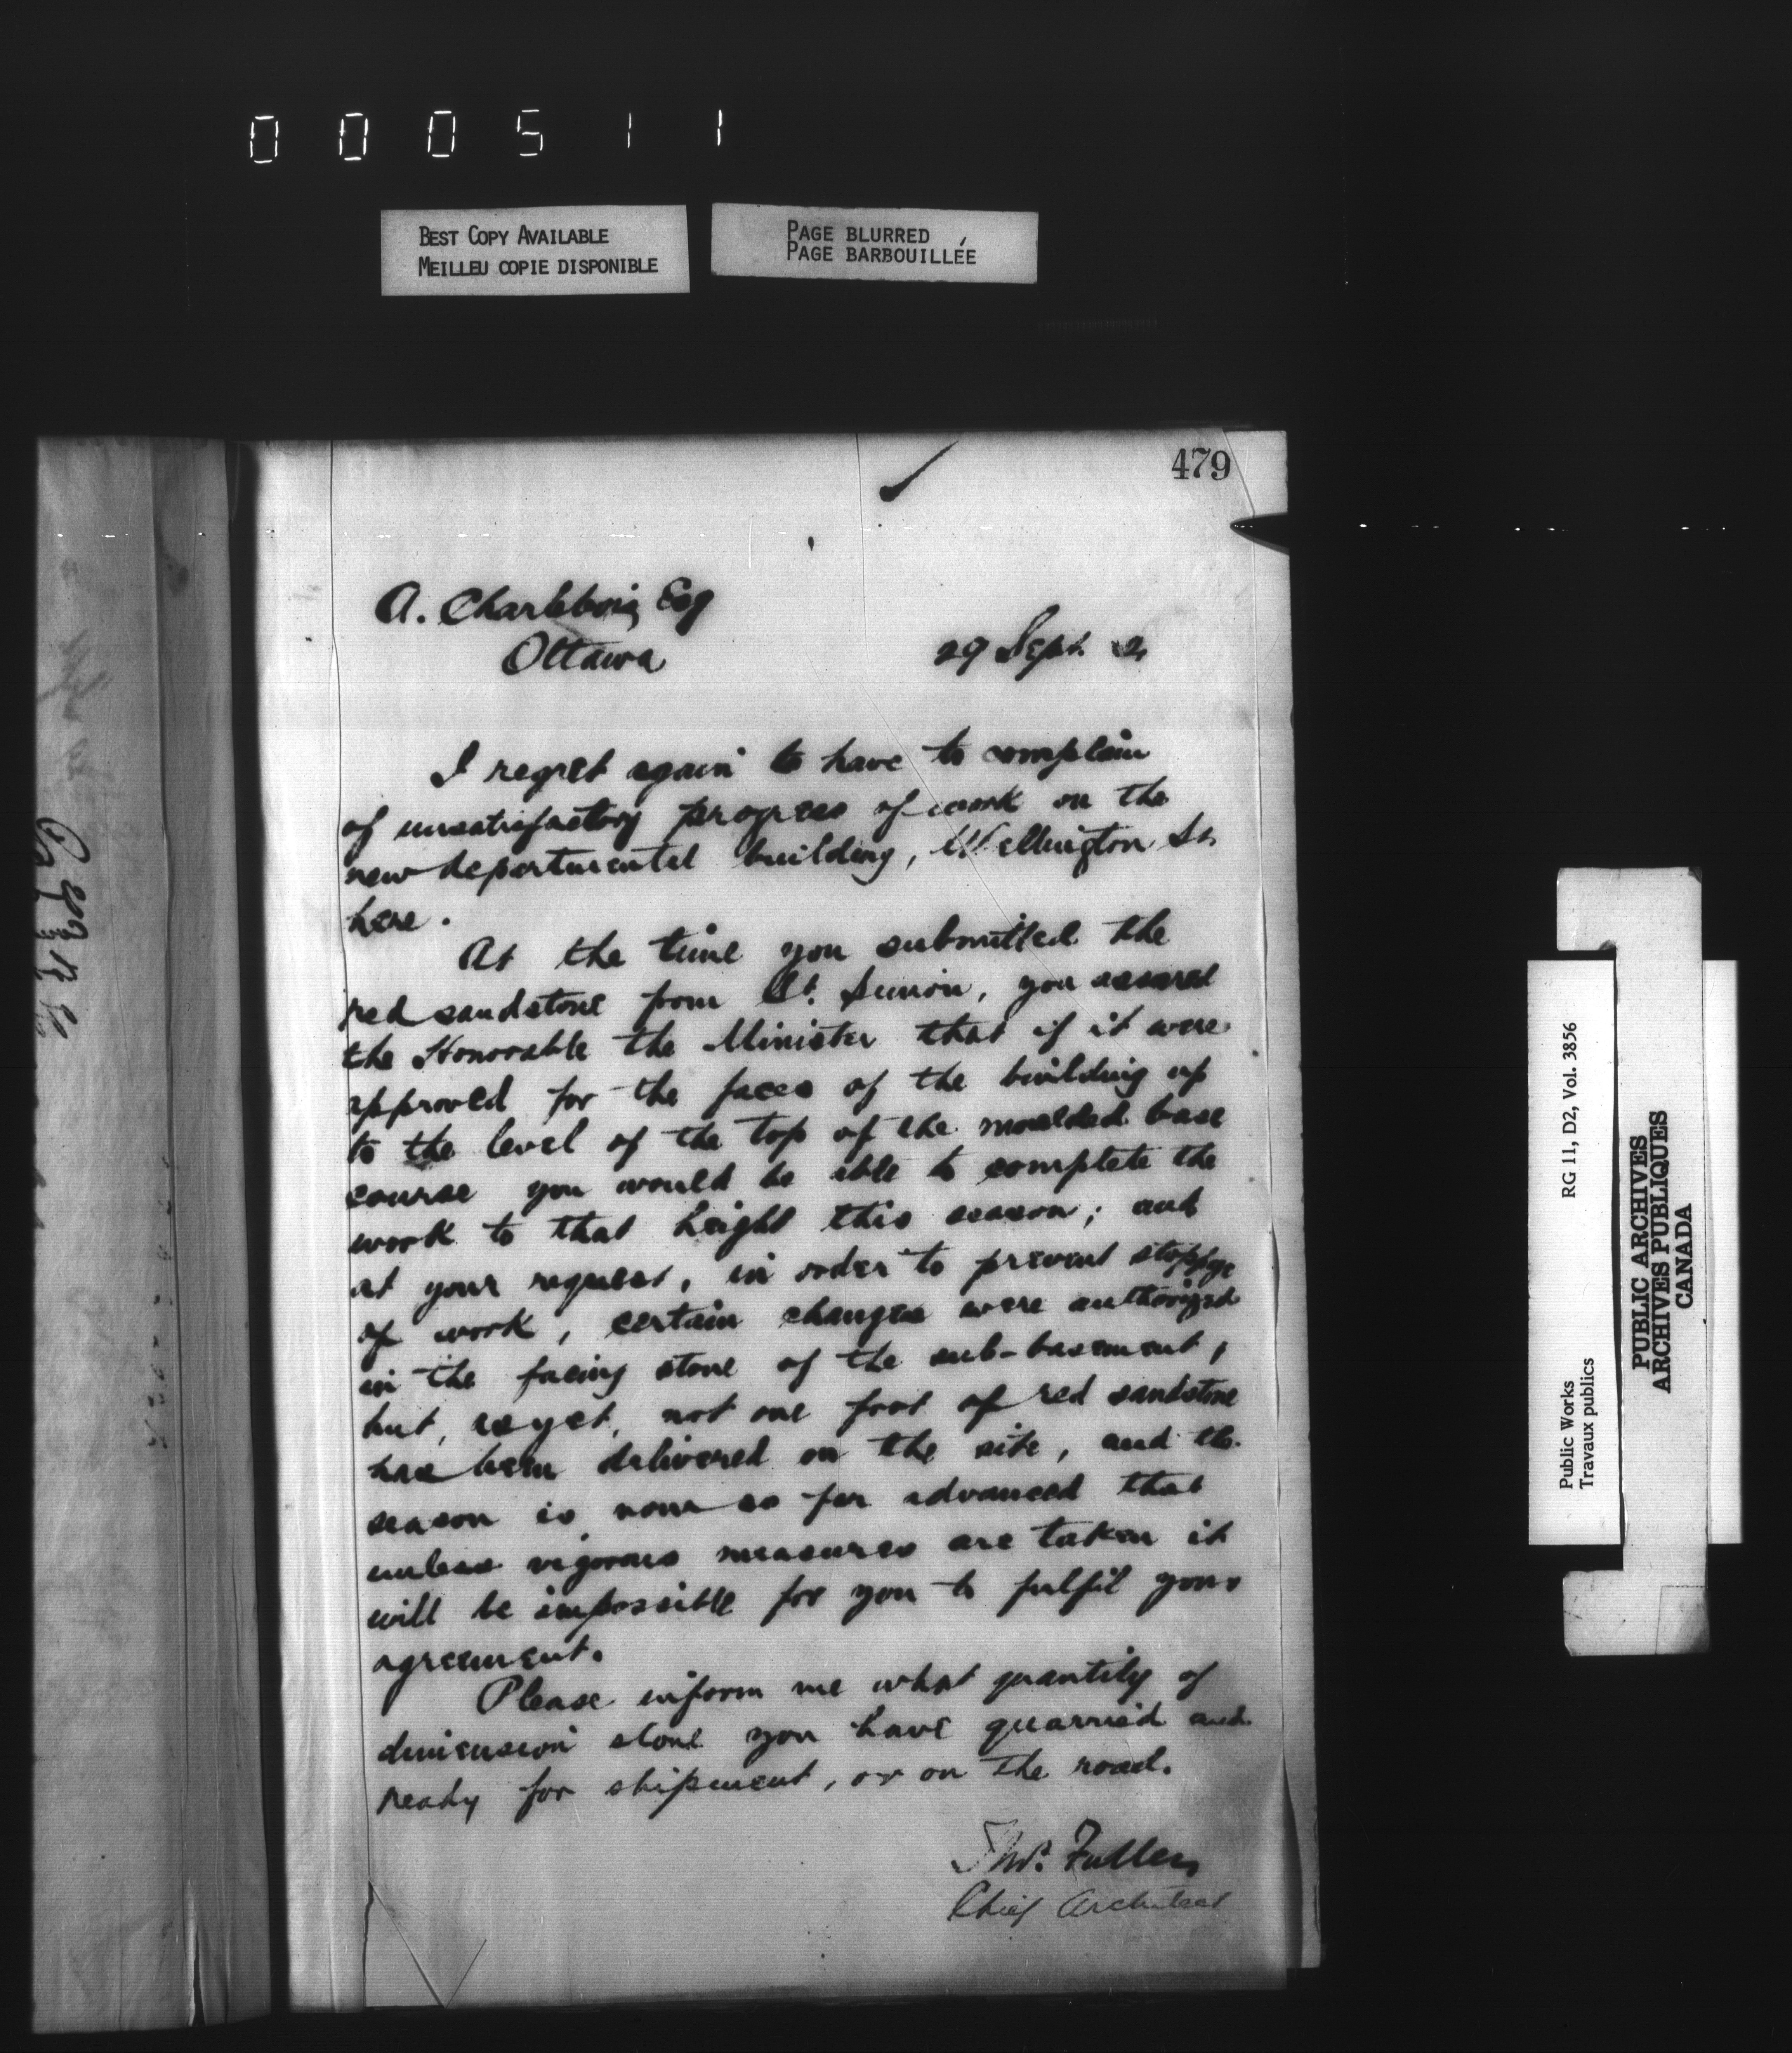 000511
BEST COPY AVAILABLE
MEILLEU COPIE DISPONIBLE
PAGE BLURRED
PAGE BARBOUILLÉE
479
A. Charlebois Esq
Ottawa
29 Sept.
I regret again to have to complain
of unsatisfactory progress of work on the
new departmental building, Wellington St.
here.
At the time you submitted the
red sandstone from St. Simon, you assured
the Honorable the Minister that if it were
approved for the faces of the building up
to the level of the top of the moulded base
course you would be able to complete the
work to that height this season; and
at your request, in order to prevent stoppage
of work, certain changes were authorized
in the facing stone of the sub-basement,
but, as yet, not one foot of red sandstone
has been delivered on the site, and the
season is now so far advanced that
unless vigorous measures are taken it
will be impossible for you to fulfil your
agreement.
Please inform me what quantity of
dimension stone you have quarried and
ready for shipment, or on the road.
Thos. Fuller
Chief Architect
Public Works
Travaux publics
RG 11, D2, Vol. 3856
PUBLIC ARCHIVES
ARCHIVES PUBLIQUES
CANADA